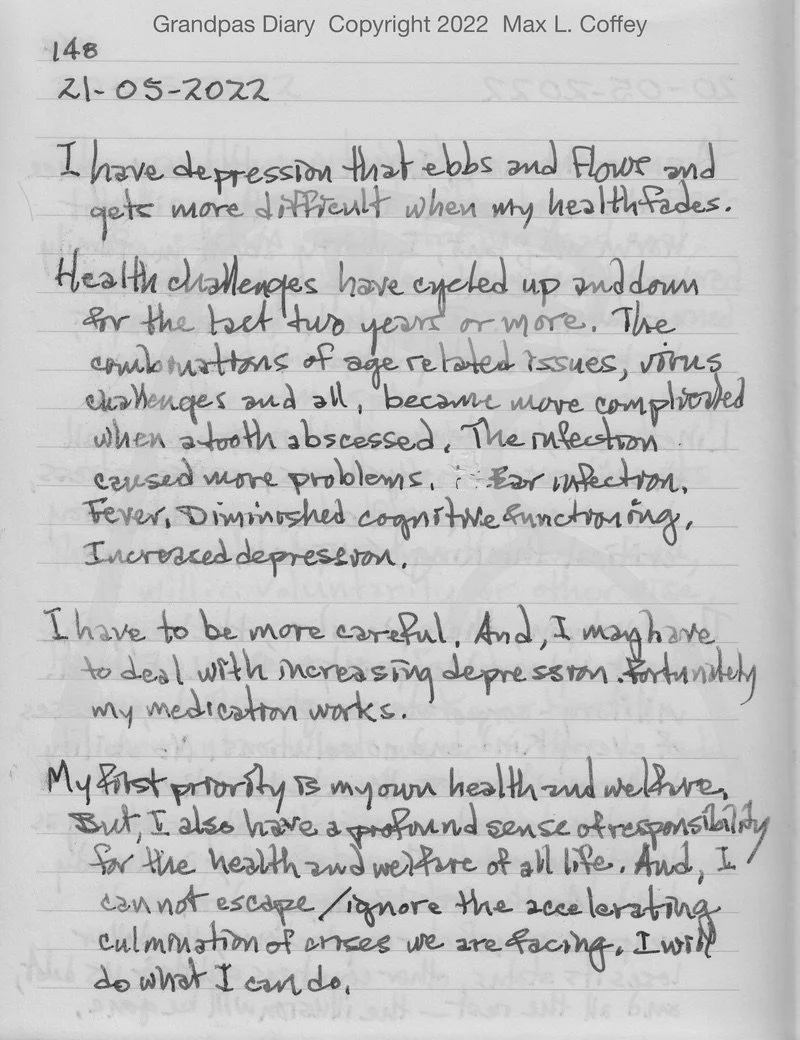 Grandpas Diary Copyright 2022 Max L. Coffey
148
21-05-2022
I have depression that ebbs and flows and
gets more difficult when my health fades.
Health challenges have cycled up and down
for the last two years or more. The
combinations of age related issues, virus
challenges and all, became more complicated
when a tooth abscessed. The infection
caused more problems. Ear infection.
Fever. Diminished cognitive functioning.
Increased depression.
I have to be more careful. And, I may have
to deal with increasing depression. Fortunately
my medication works.
My first priority is my own health and welfare.
But, I also have a profound sense of responsibility
for the health and welfare of all life. And, I
cannot escape/ignore the accelerating
culmination of crises we are facing. I will
do what I can do.